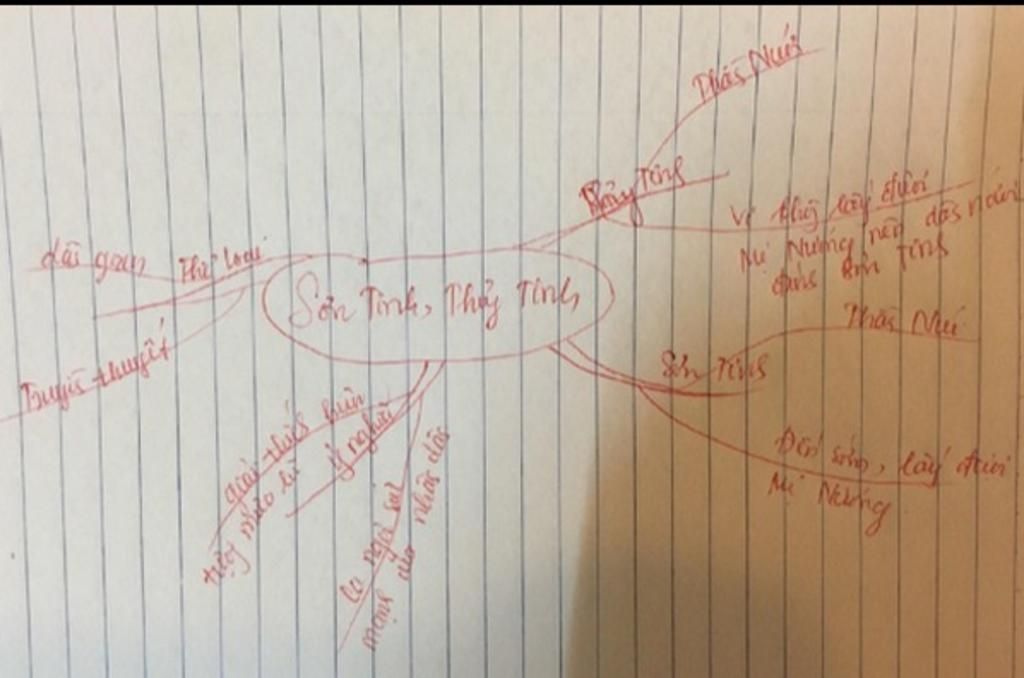 Thần Nước
Thủy Tinh
Vì không lấy được
Mị Nương nên dâng nước
đánh Sơn Tinh
dân gian
Thể loại
Truyền thuyết
Sơn Tinh, Thủy Tinh
Thần Núi
Sơn Tinh
Đến sớm, lấy được
Mị Nương
giải thích hiện
tượng mưa lũ
ý nghĩa
ca ngợi sức
mạnh của nhân dân